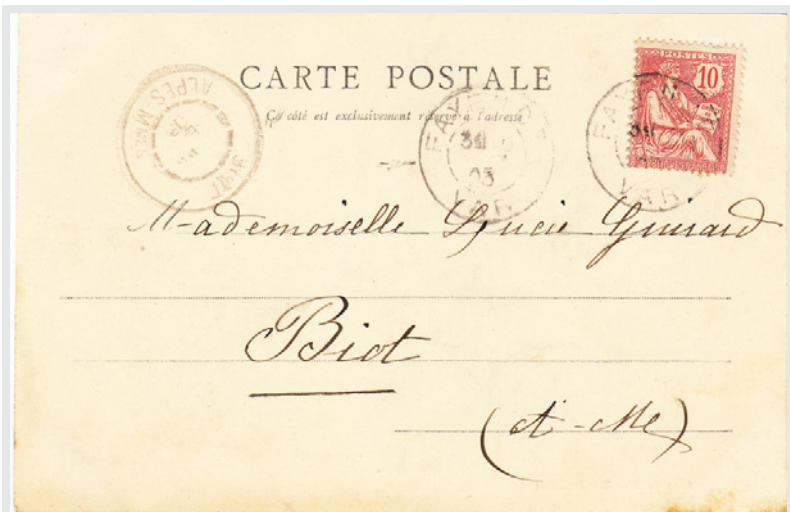 CARTE POSTALE
Ce côté est exclusivement réservé à l'adresse
POSTES
10
BIOT
ALPES-Mmes
FAYENCE
31
03
VAR
FAYEN
VAR
Mademoiselle Lucie Guirard
Biot
(A-Me)